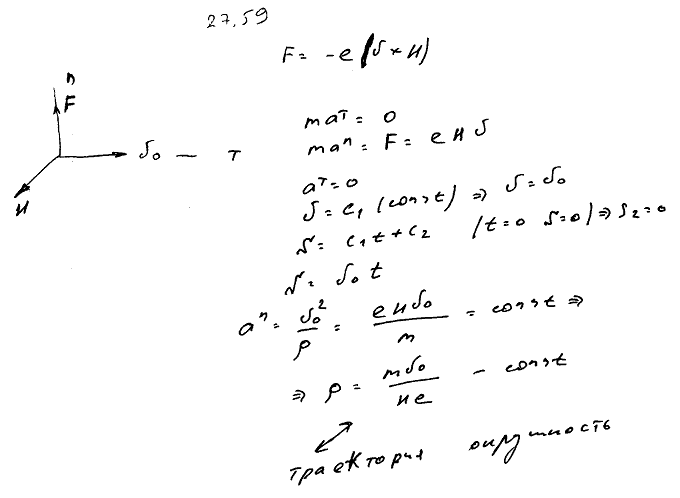 27.59
F = -e(υ × H)
n
F
υ₀ — τ
H
maᵀ = 0
maⁿ = F = eHυ
aᵀ = 0
υ = c₁ (const) ⇒ υ = υ₀
S = c₁t + c₂ (t=0 S=0) ⇒ c₂ = 0
S = υ₀t
aⁿ = υ₀²/ρ = eHυ₀/m = const ⇒
⇒ ρ = mυ₀/He - const
траектория окружность